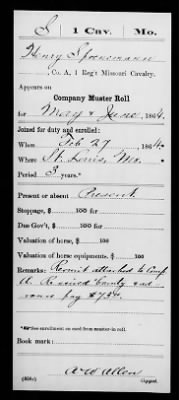 S | 1 Cav. | Mo.
Henry
, Co. A, 1 Reg't Missouri Cavalry.
Appears on
Company Muster Roll
for May & June, 1864.
Joined for duty and enrolled:
When Feb 27, 1864.
Where St. Louis, Mo.
Period 3 years.*
Present or absent Present
Stoppage, $ 100 for
Due Gov't, $ 100 for
Valuation of horse, $ 100
Valuation of horse equipments, $ 100
Remarks: Recruit attached to Comp
A. Received bounty
pay $73
*See enrollment on card from muster-in roll.
Book mark:
A W Allen
(858c) Copyist.